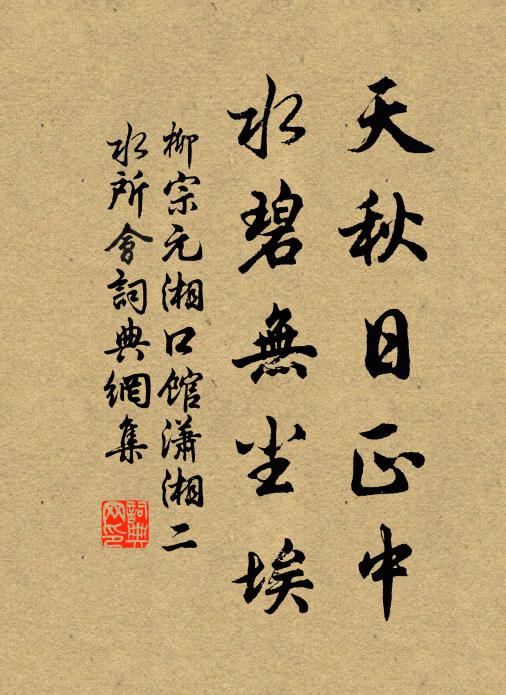 天秋日正中
水碧無尘埃
柳宗元湘口館瀟湘二
水所會詞典網集
詞典网印